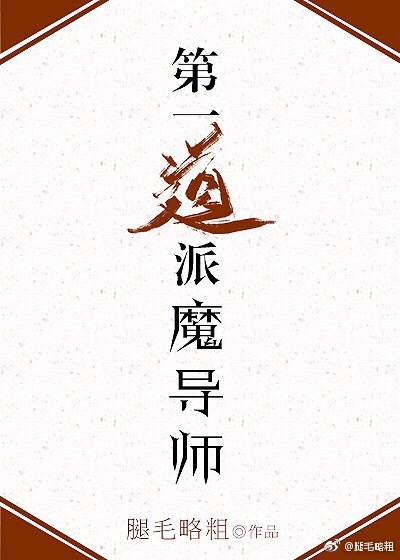 第一道派魔导师
腿毛略粗◎作品
@腿毛略粗